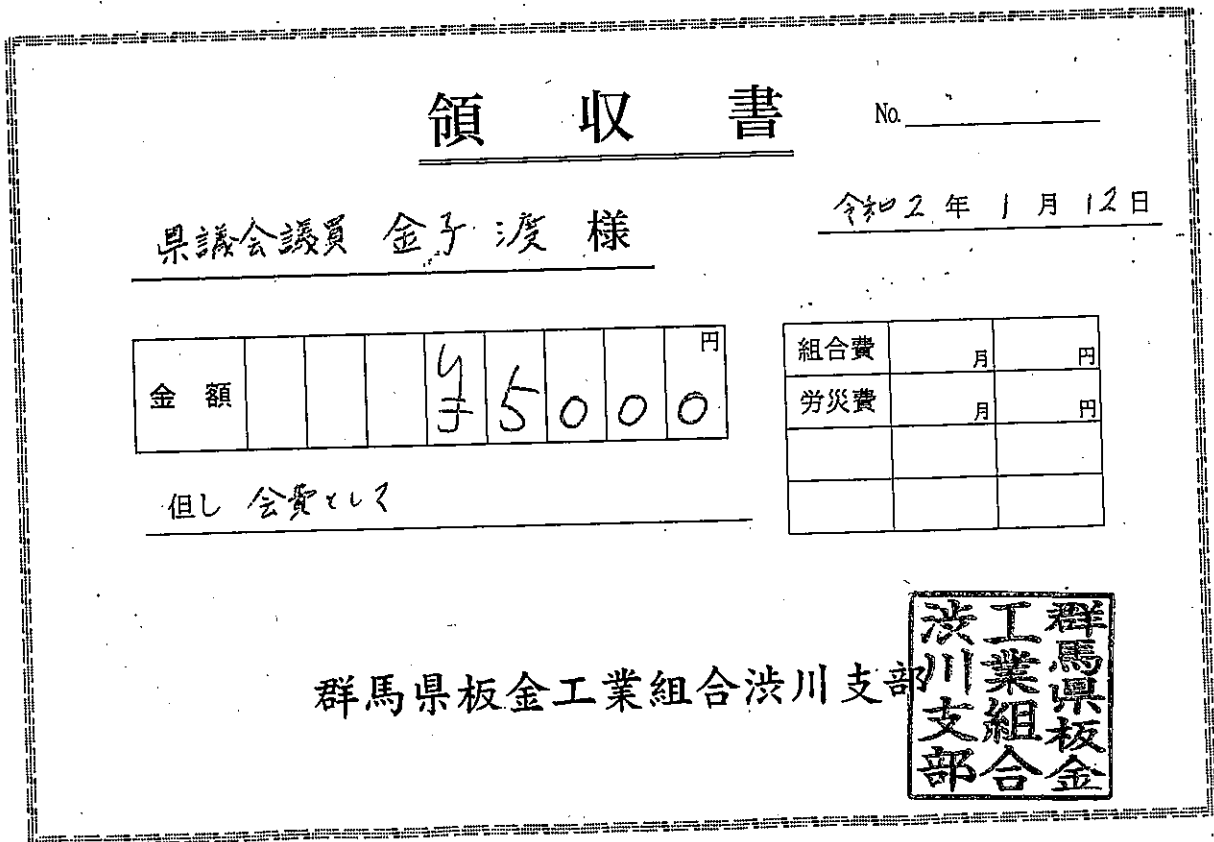 領収書
No.
令和2年1月12日
県議会議員 金子 渡 様
金額 ¥5000円
組合費 月 円
労災費 月 円
但し 会費として
群馬県板金工業組合渋川支部
群馬県板金
工業組合
渋川支部